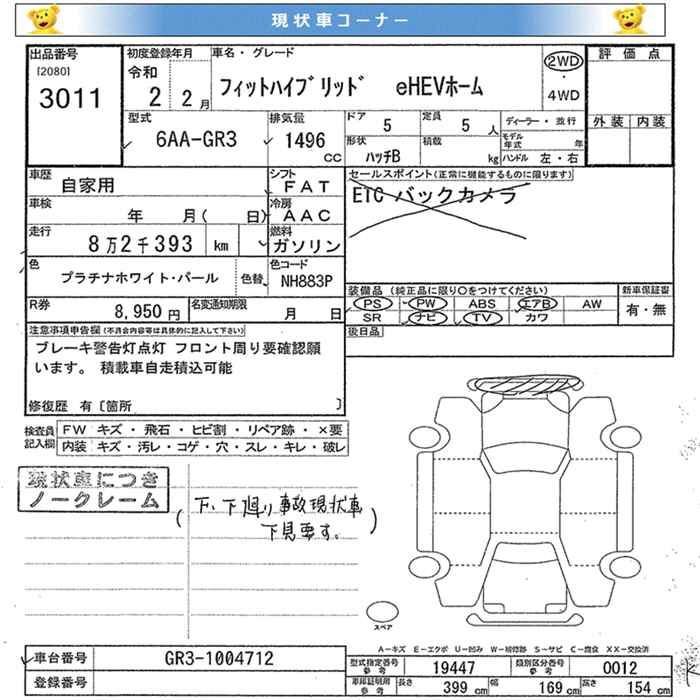 現状車コーナー
出品番号
[2080]
3011
初度登録年月
令和
2 2月
車名・グレード
フィットハイブリッド eHEVホーム
2WD
・
4WD
評価点
外装 内装
型式
6AA-GR3
排気量
1496
CC
ドア
5
定員
5 人
ディーラー・並行
モデル年式 年
形状
ハッチB
積載
kg
ハンドル 左・右
車歴
自家用
シフト
FAT
セールスポイント(正常に機能するものに限ります)
ETC バックカメラ
車検
年 月( 日)
冷房
AAC
走行
8万2千393 km
燃料
ガソリン
色
プラチナホワイト・パール
色替
色コード
NH883P
装備品 (純正品に限り○をつけてください)
PS PW ABS エアB AW
SR ナビ TV カワ
新車保証書
有・無
R券
8,950円
名変通知期限
月 日
後日品
注意事項申告欄(不適合内容等は具体的に記入して下さい)
ブレーキ警告灯点灯 フロント周り要確認願
います。 積載車自走積込可能
修復歴 有[箇所 ]
検査員
記入欄
FW キズ・飛石・ヒビ割・リペア跡・×要
内装 キズ・汚レ・コゲ・穴・スレ・キレ・破レ
現状車につき
ノークレーム
(下、下廻り事故現状車
下見要す。)
スペア
A-キズ E-エクボ U-凹み W-補修跡 S-サビ C-腐食 XX-交換済
車台番号
GR3-1004712
型式指定番号
参考
19447
類別区分番号
参考
0012
登録番号
車庫証明用
参考
長さ
399 cm
幅
169 cm
高さ
154 cm